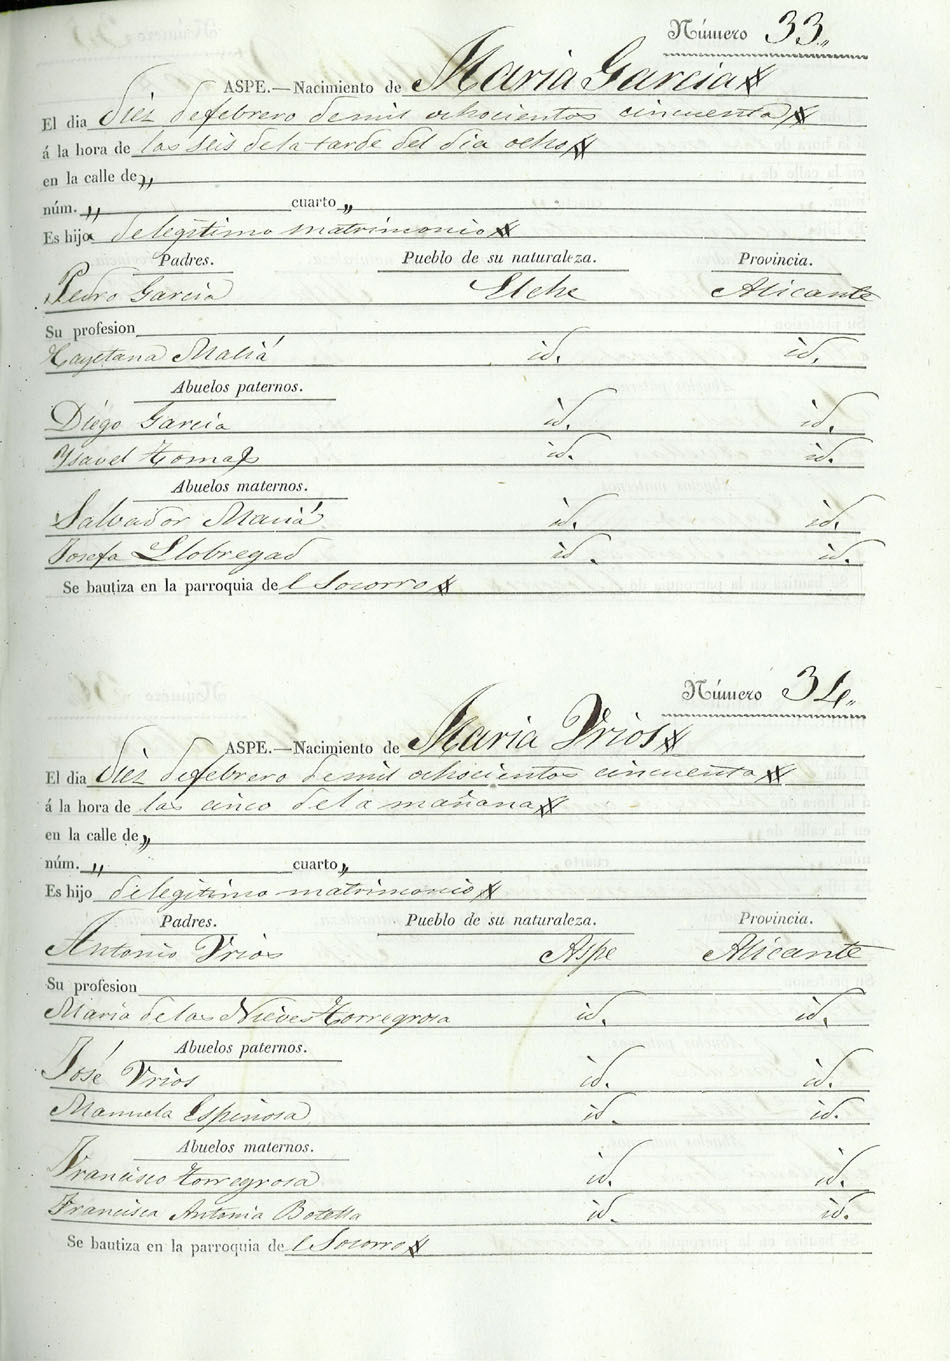 Número 33.,
ASPE.—Nacimiento de Maria Garcia
El dia diez de febrero de mil ochocientos cincuenta
á la hora de las seis de la tarde del dia ocho
en la calle de „
núm. „ cuarto „
Es hija de legitimo matrimonio
Padres. Pueblo de su naturaleza. Provincia.
Pedro Garcia Elche Alicante
Su profesion
Cayetana Maciá id. id.
Abuelos paternos.
Diego Garcia id. id.
Ysavel Tomas id. id.
Abuelos maternos.
Salvador Maciá id. id.
Josefa Llobregad id. id.
Se bautiza en la parroquia del Socorro
Número 34.,
ASPE.—Nacimiento de Maria Vrios
El dia diez de febrero de mil ochocientos cincuenta
á la hora de las cinco de la mañana
en la calle de „
núm. „ cuarto „
Es hijo de legitimo matrimonio
Padres. Pueblo de su naturaleza. Provincia.
Antonio Vrios Aspe Alicante
Su profesion
Maria de las Nieves Torregrosa id. id.
Abuelos paternos.
José Vrios id. id.
Manuela Espinosa id. id.
Abuelos maternos.
Francisco Torregrosa id. id.
Francisca Antonia Botella id. id.
Se bautiza en la parroquia del Socorro